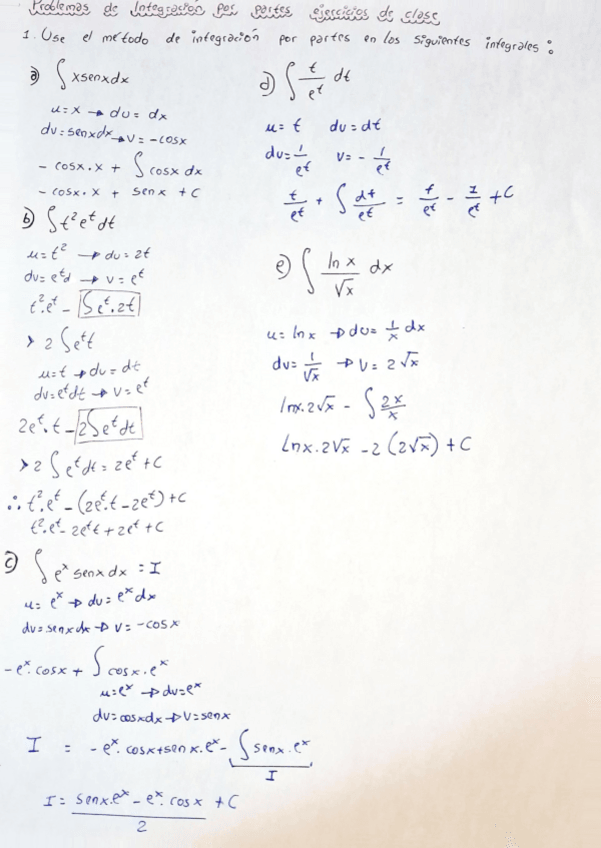 Problemas de Integración por partes ejercicios de clase
1. Use el método de integración por partes en los siguientes integrales:
a) ∫ xsenxdx
u=x → du= dx
dv=senxdx → v= -cosx
- cosx.x + ∫ cosx dx
- cosx.x + senx + C
b) ∫ t² e^t dt
u=t² → du= 2t
dv= e^t d → v= e^t
t².e^t - ∫ e^t.2t
> 2 ∫ e^t t
u=t → du= dt
dv=e^t dt → v= e^t
2e^t.t - 2∫ e^t dt
> 2 ∫ e^t dt = 2e^t + C
∴ t².e^t - (2e^t.t - 2e^t) + C
t².e^t - 2e^t t + 2e^t + C
c) ∫ e^x senx dx = I
u= e^x → du= e^x dx
dv= senx dx → v= -cosx
-e^x.cosx + ∫ cosx.e^x
u=e^x → du=e^x
dv=cosxdx → v=senx
I = -e^x.cosx+senx.e^x - ∫ senx.e^x
I
I= senx.e^x - e^x.cosx + C
2
d) ∫ t/e^t dt
u= t du= dt
dv= 1/e^t v= - 1/e^t
t/e^t + ∫ dt/e^t = t/e^t - 1/e^t + C
e) ∫ ln x/√x dx
u= lnx → du= 1/x dx
dv= 1/√x → v= 2√x
lnx.2√x - ∫ 2x/x
Lnx.2√x - 2(2√x) + C